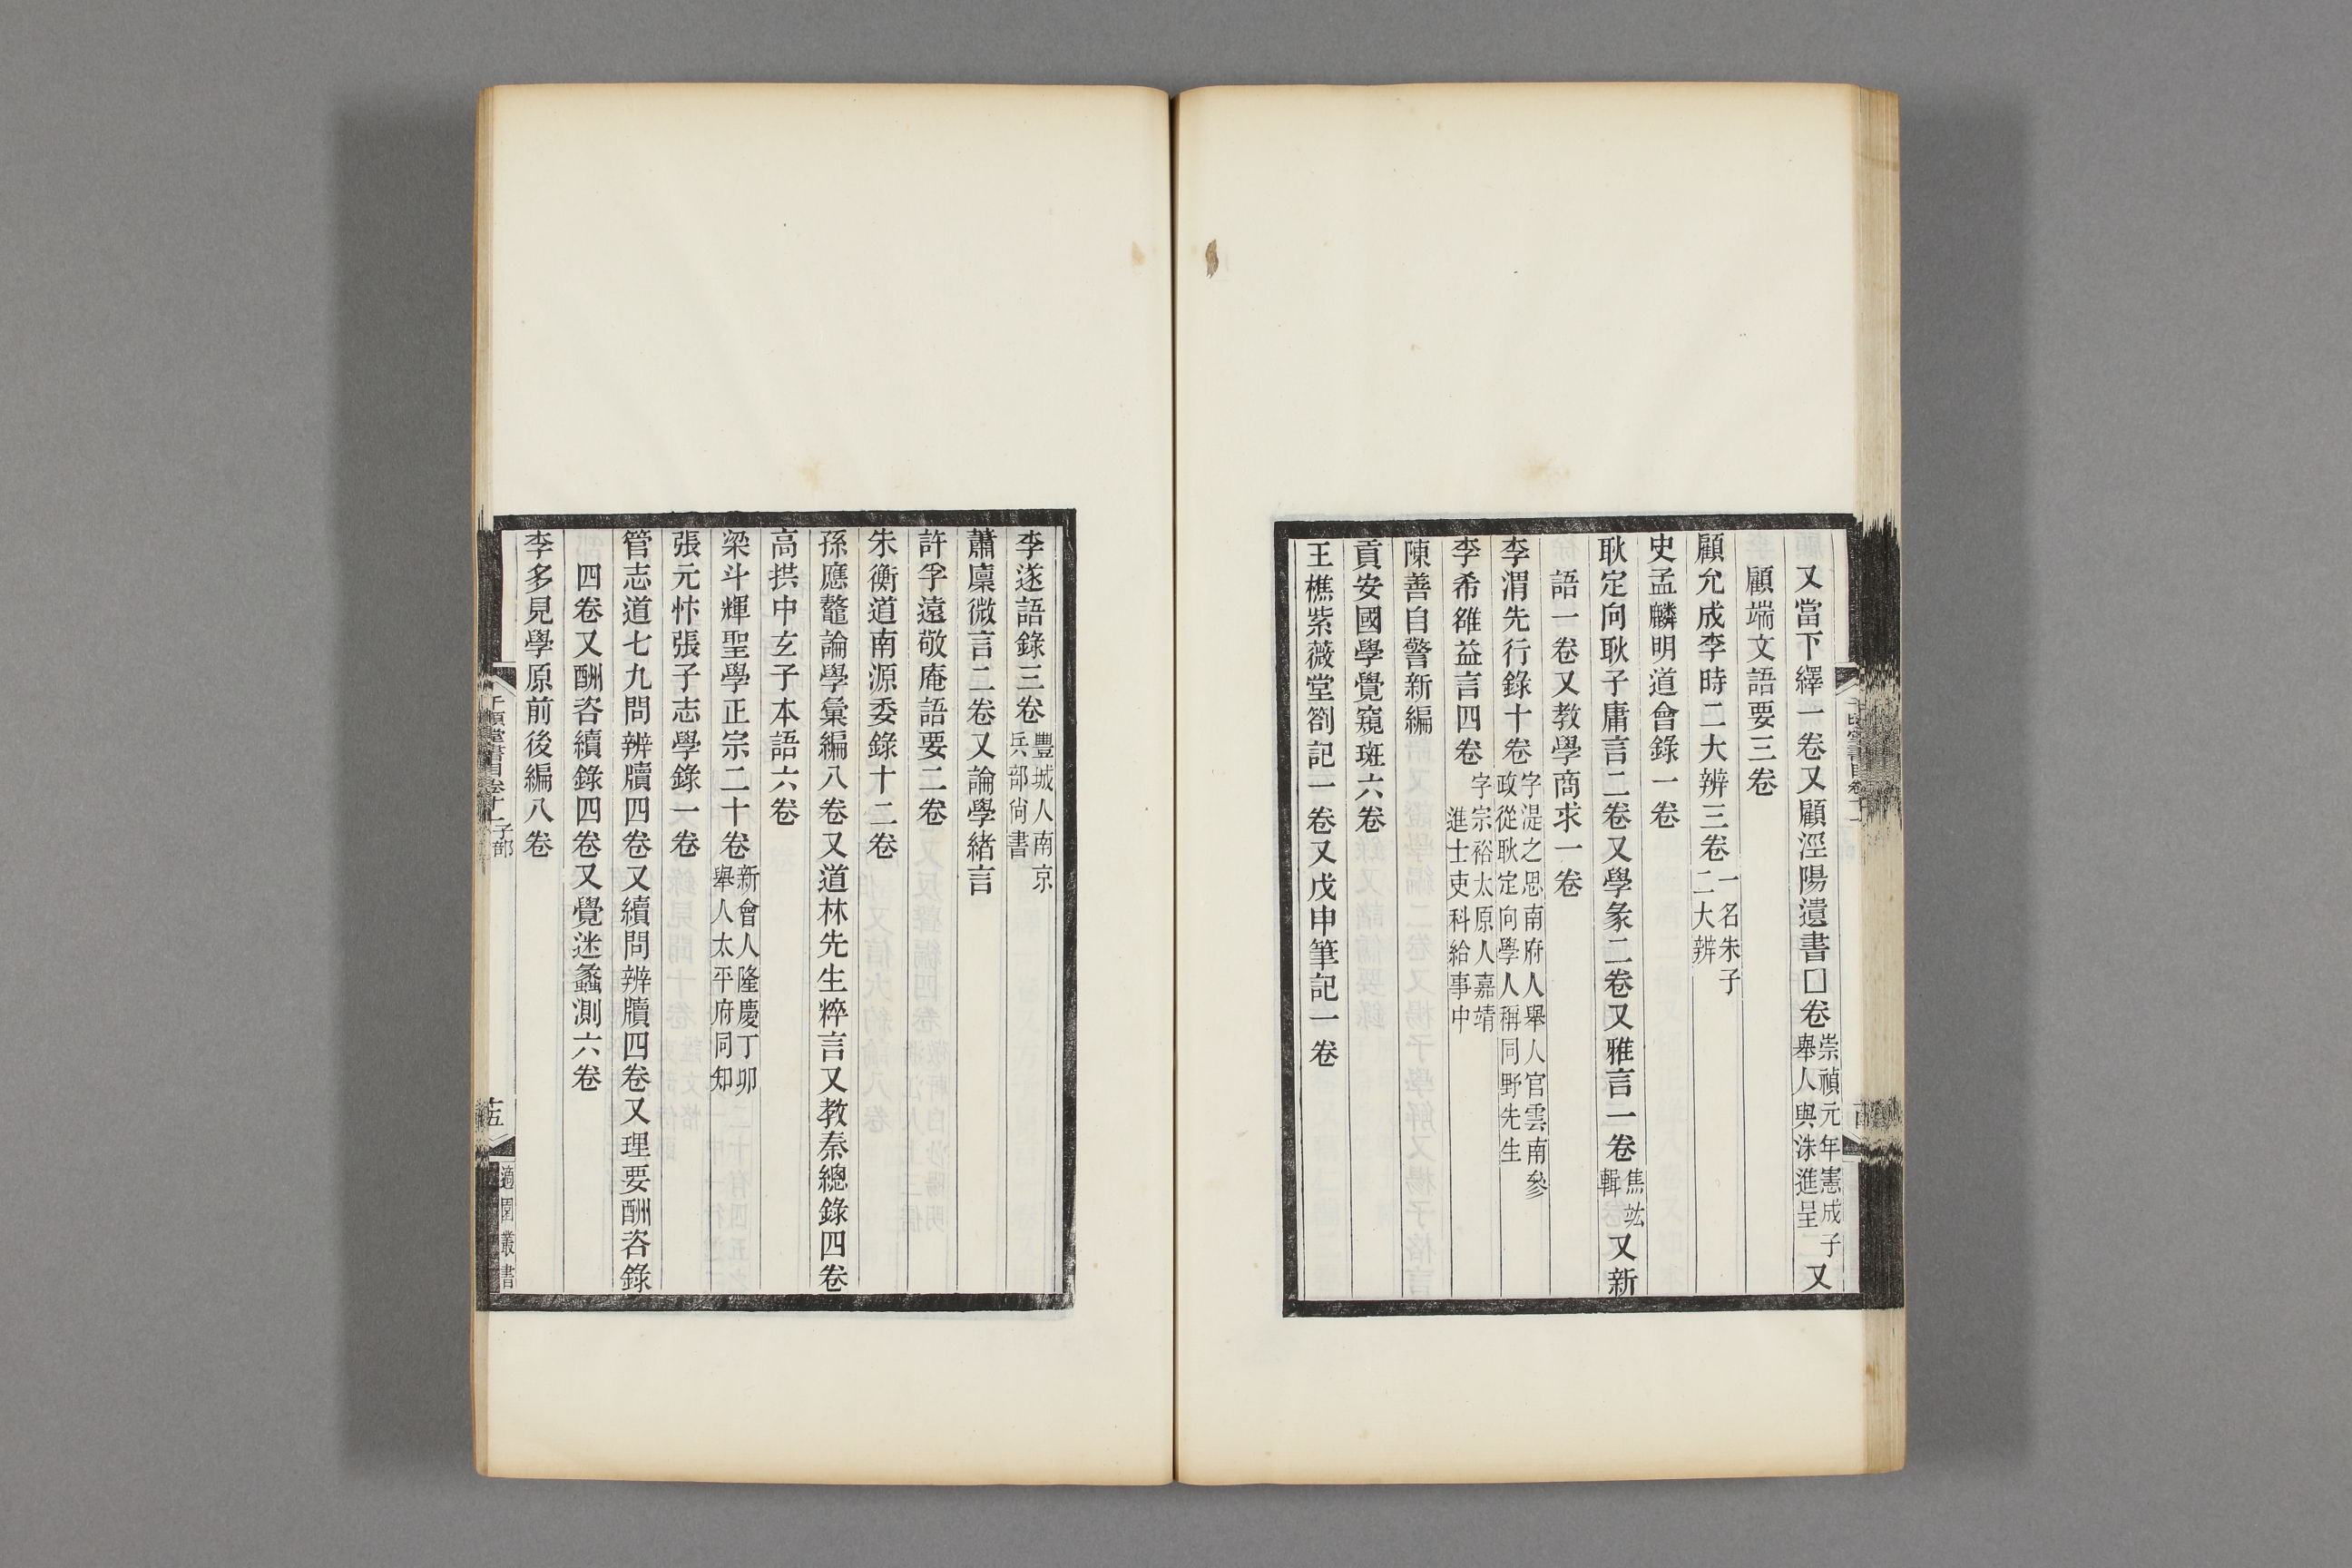 又當下繹一卷又顧涇陽遺書□卷崇禎元年憲成子舉人與洙進呈又
顧端文語要三卷
顧允成李時二大辨三卷一名朱子二大辨
史孟麟明道會錄一卷
耿定向耿子庸言二卷又學彖二卷又雅言一卷焦竑輯又新
語一卷又教學商求一卷
李渭先行錄十卷字湜之思南府人舉人官雲南參政從耿定向學人稱同野先生
李希雒益言四卷字宗裕太原人嘉靖進士吏科給事中
陳善自警新編
貢安國學覺窺斑六卷
王樵紫薇堂劄記一卷又戊申筆記一卷
李遂語錄三卷豐城人南京兵部尚書
蕭廩微言二卷又論學緒言
許孚遠敬庵語要二卷
朱衡道南源委錄十二卷
孫應鼇論學彙編八卷又道林先生粹言又教秦總錄四卷
高拱中玄子本語六卷
梁斗輝聖學正宗二十卷新會人隆慶丁卯舉人太平府同知
張元忭張子志學錄一卷
管志道七九問辨牘四卷又續問辨牘四卷又理要酬咨錄
四卷又酬咨續錄四卷又覺迷蠡測六卷
李多見學原前後編八卷
千頃堂書目卷十一子部
十五
適園叢書